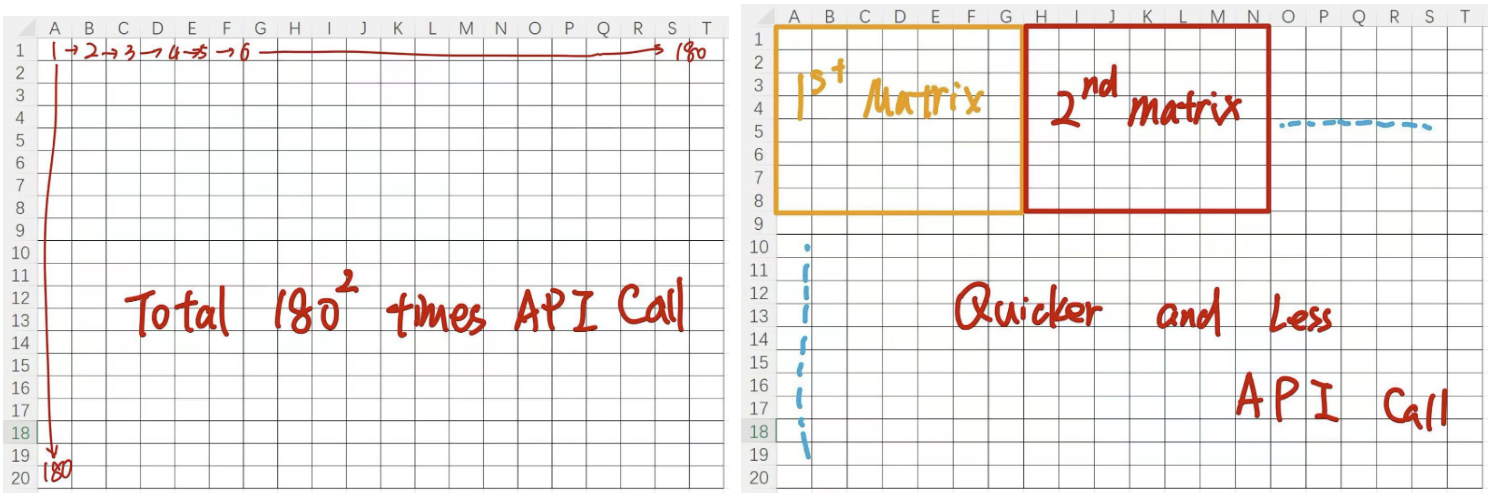 A B C D E F G H I J K L M N O P Q R S T
1 1 → 2 → 3 → 4 → 5 → 6 → 180
2
3
4
5
6
7
8
9
10
11
12
13
14
15
16
17
18
19
20
180
Total 180² times API Call
A B C D E F G H I J K L M N O P Q R S T
1
2
3
4
5
6
7
8
9
10
11
12
13
14
15
16
17
18
19
20
1st Matrix
2nd matrix
Quicker and Less
API Call